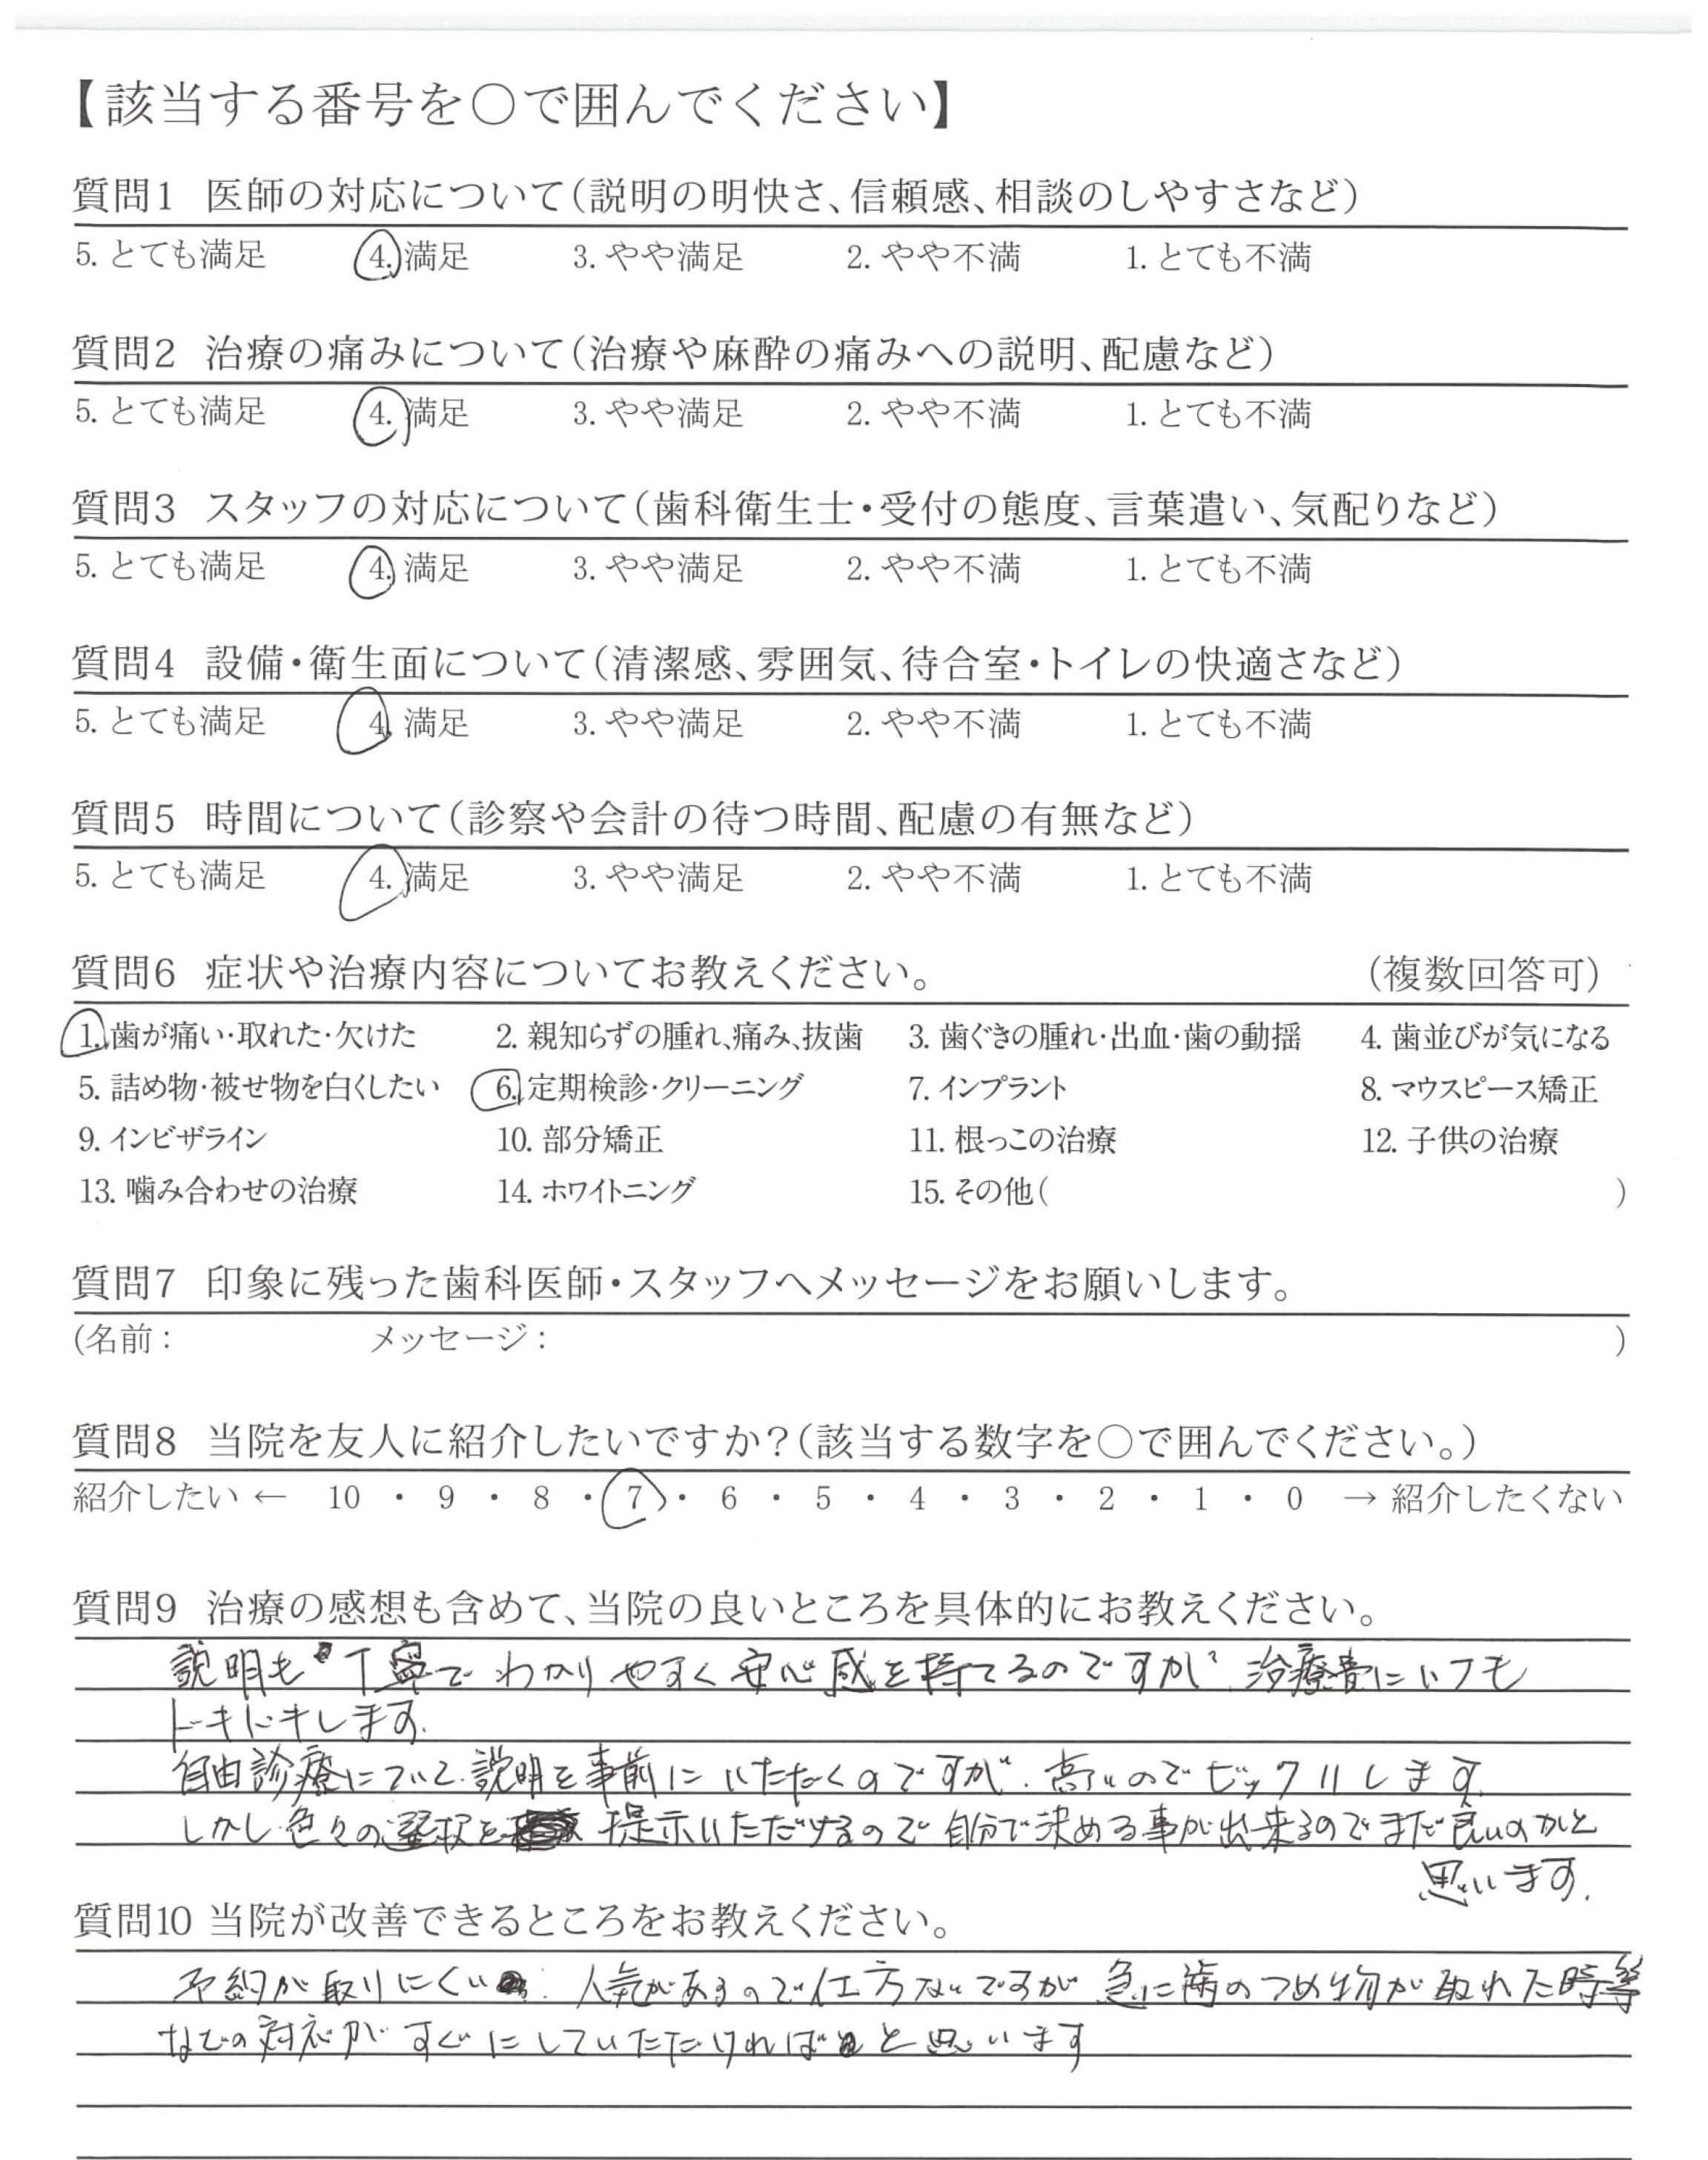 【該当する番号を○で囲んでください】
質問1 医師の対応について(説明の明快さ、信頼感、相談のしやすさなど)
5. とても満足 4. 満足 3. やや満足 2. やや不満 1. とても不満
質問2 治療の痛みについて(治療や麻酔の痛みへの説明、配慮など)
5. とても満足 4. 満足 3. やや満足 2. やや不満 1. とても不満
質問3 スタッフの対応について(歯科衛生士・受付の態度、言葉遣い、気配りなど)
5. とても満足 4. 満足 3. やや満足 2. やや不満 1. とても不満
質問4 設備・衛生面について(清潔感、雰囲気、待合室・トイレの快適さなど)
5. とても満足 4. 満足 3. やや満足 2. やや不満 1. とても不満
質問5 時間について(診察や会計の待つ時間、配慮の有無など)
5. とても満足 4. 満足 3. やや満足 2. やや不満 1. とても不満
質問6 症状や治療内容についてお教えください。 (複数回答可)
1. 歯が痛い・取れた・欠けた 2. 親知らずの腫れ、痛み、抜歯 3. 歯ぐきの腫れ・出血・歯の動揺 4. 歯並びが気になる
5. 詰め物・被せ物を白くしたい 6. 定期検診・クリーニング 7. インプラント 8. マウスピース矯正
9. インビザライン 10. 部分矯正 11. 根っこの治療 12. 子供の治療
13. 噛み合わせの治療 14. ホワイトニング 15. その他( )
質問7 印象に残った歯科医師・スタッフへメッセージをお願いします。
(名前: メッセージ: )
質問8 当院を友人に紹介したいですか?(該当する数字を○で囲んでください。)
紹介したい ← 10 ・ 9 ・ 8 ・ 7 ・ 6 ・ 5 ・ 4 ・ 3 ・ 2 ・ 1 ・ 0 → 紹介したくない
質問9 治療の感想も含めて、当院の良いところを具体的にお教えください。
説明も丁寧でわかりやすく安心感を持てるのですが、治療費にいつも
ドキドキします。
自由診療について説明を事前にいただくのですが、高いのでビックリします。
しかし色々の選択を提示いただけるので自分で決める事が出来るのでまだ良いのかと
思います。
質問10 当院が改善できるところをお教えください。
予約が取りにくい 人気があるので仕方ないですが 急に歯のつめ物が取れた時等
などの対応が すぐにしていただければと思います